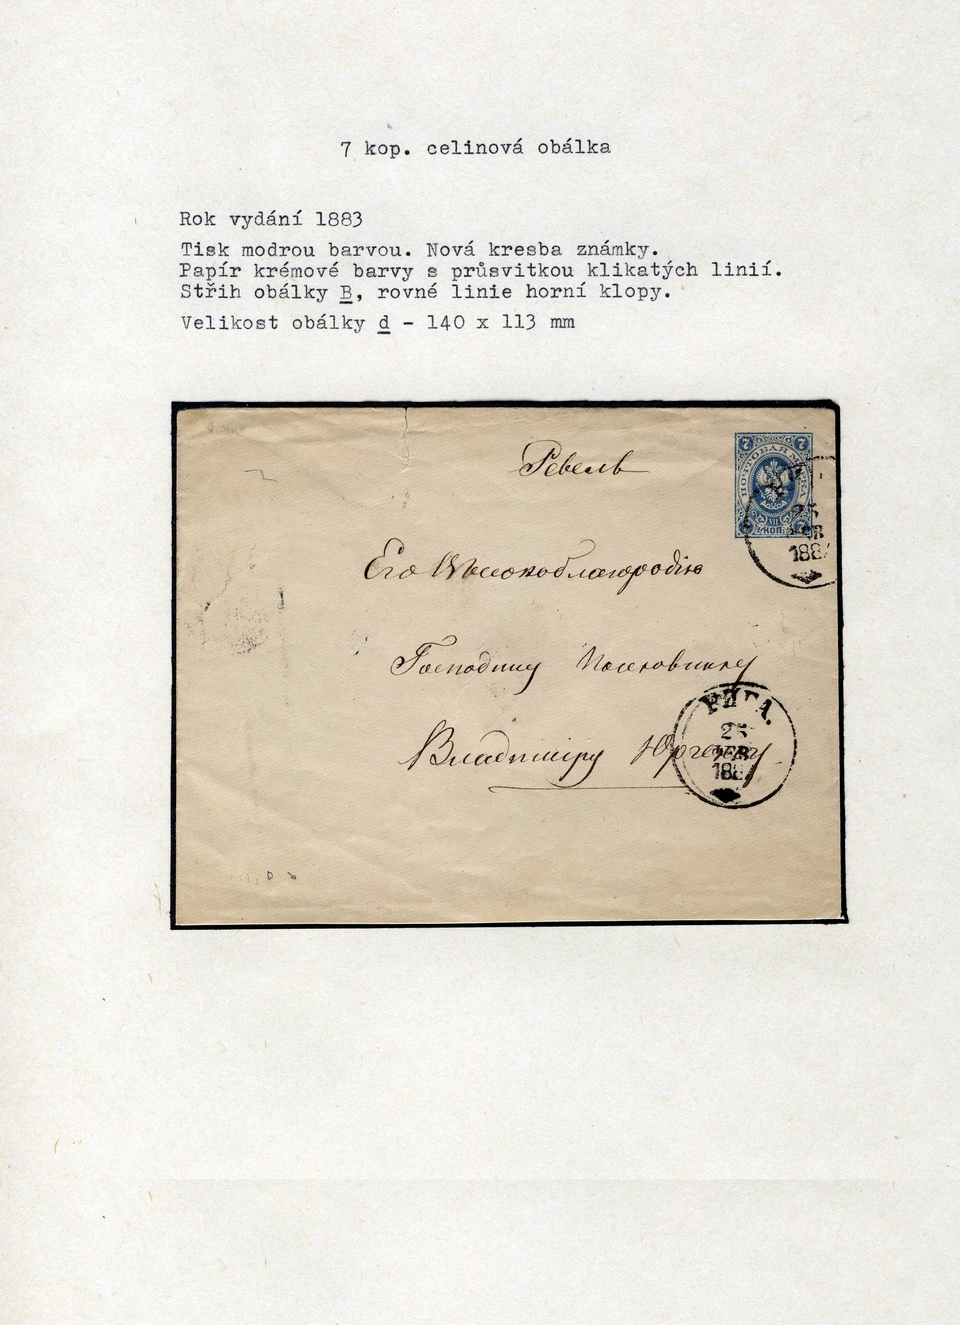 7 kop. celinová obálka
Rok vydání 1883
Tisk modrou barvou. Nová kresba známky.
Papír krémové barvy s průsvitkou klikatých linií.
Střih obálky B, rovné linie horní klopy.
Velikost obálky d - 140 x 113 mm
7 7
ПОЧТОВАЯ МАРКА
VII
7 КОП. 7
25
ФЕВ
188
Ревель
Его Высокоблагородію
Господину Полковнику
Владиміру
РИГА.
25
ФЕВ
188